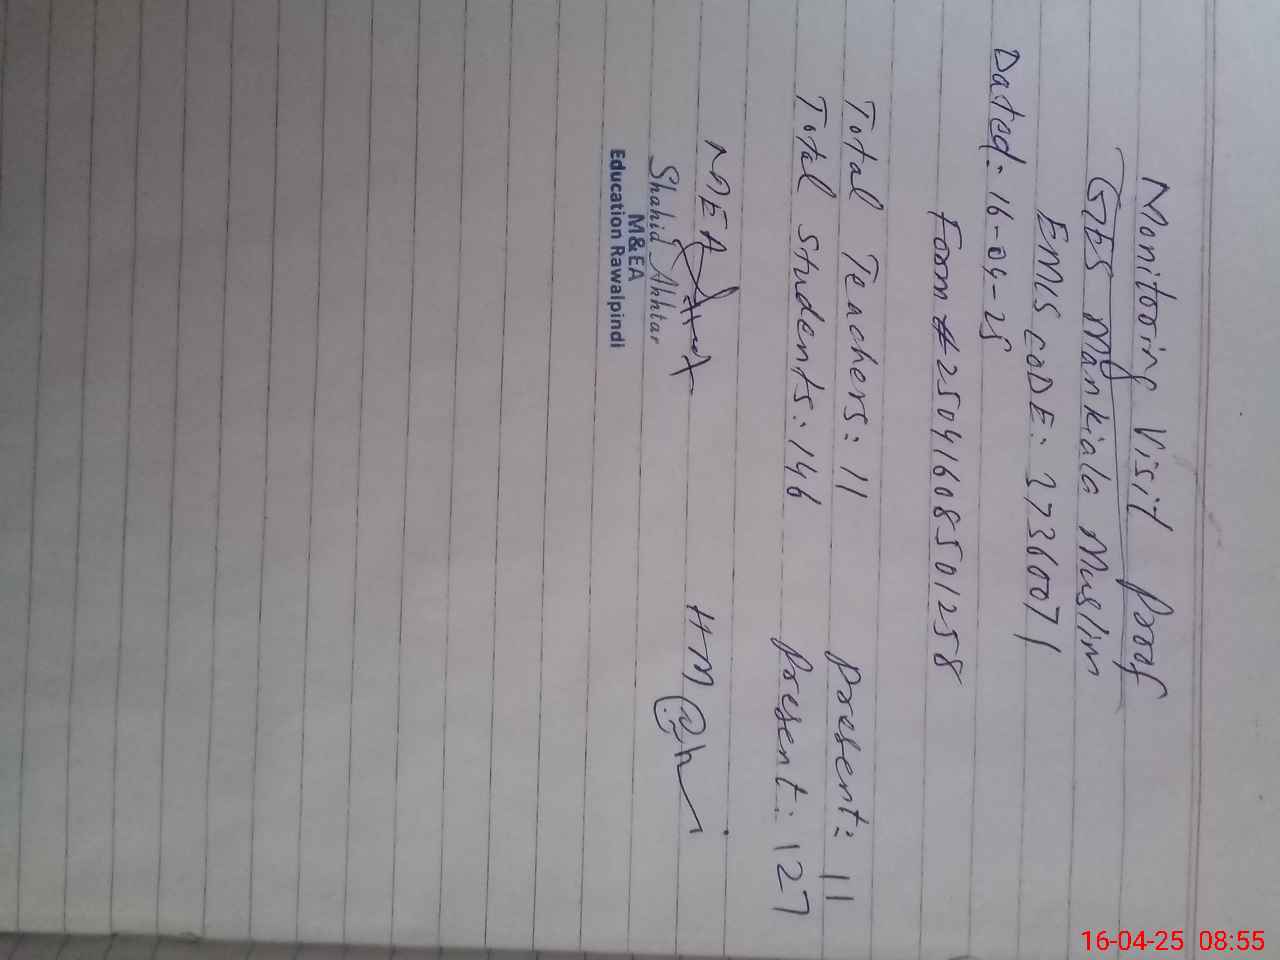 Monitoring Visit Proof
GES Mankiala Muslim
EMIS CODE: 37360071
Dated: 16-04-25
Form # 250416085501258
Total Teachers: 11 Present: 11
Total Students: 146 Present: 127
MEA HM
Shahid Akhtar
M&EA
Education Rawalpindi
16-04-25 08:55